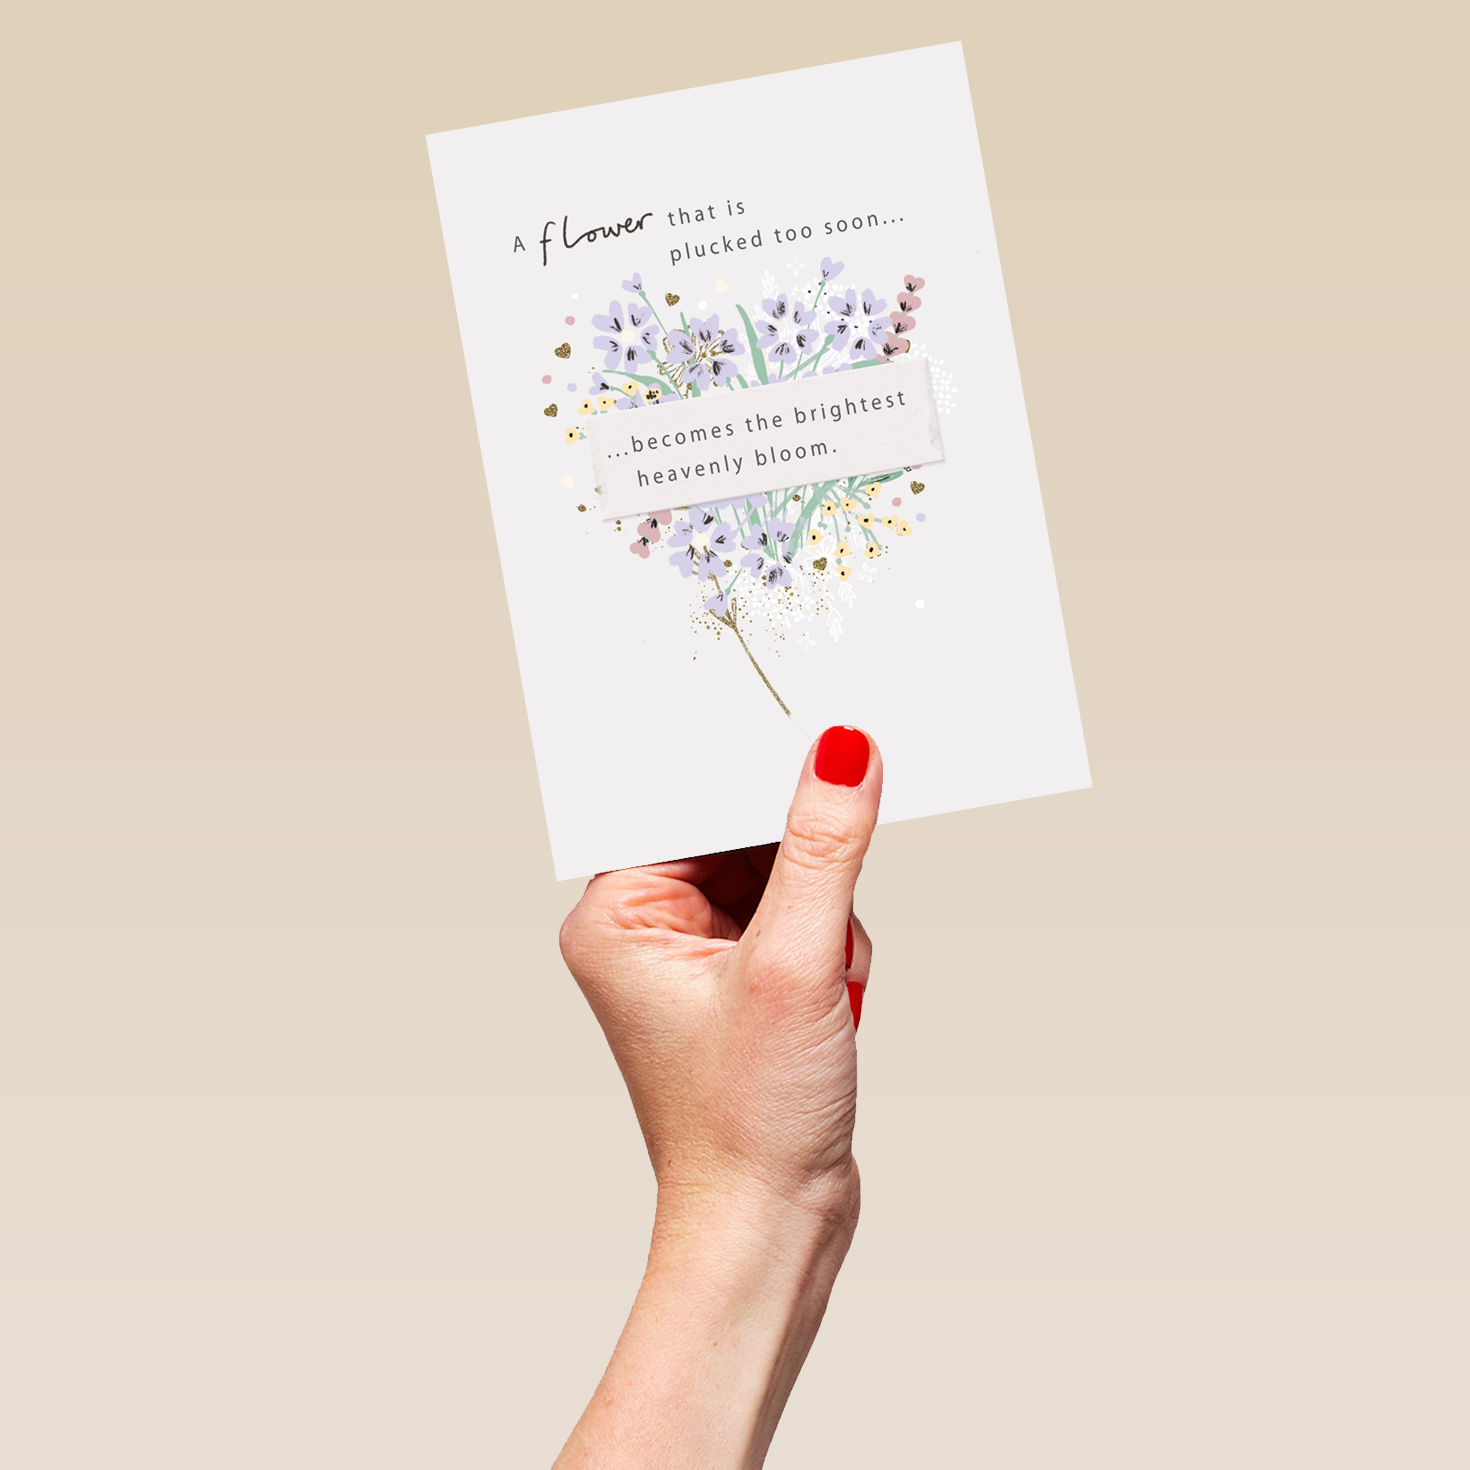 A flower that is
plucked too soon...
...becomes the brightest
heavenly bloom.